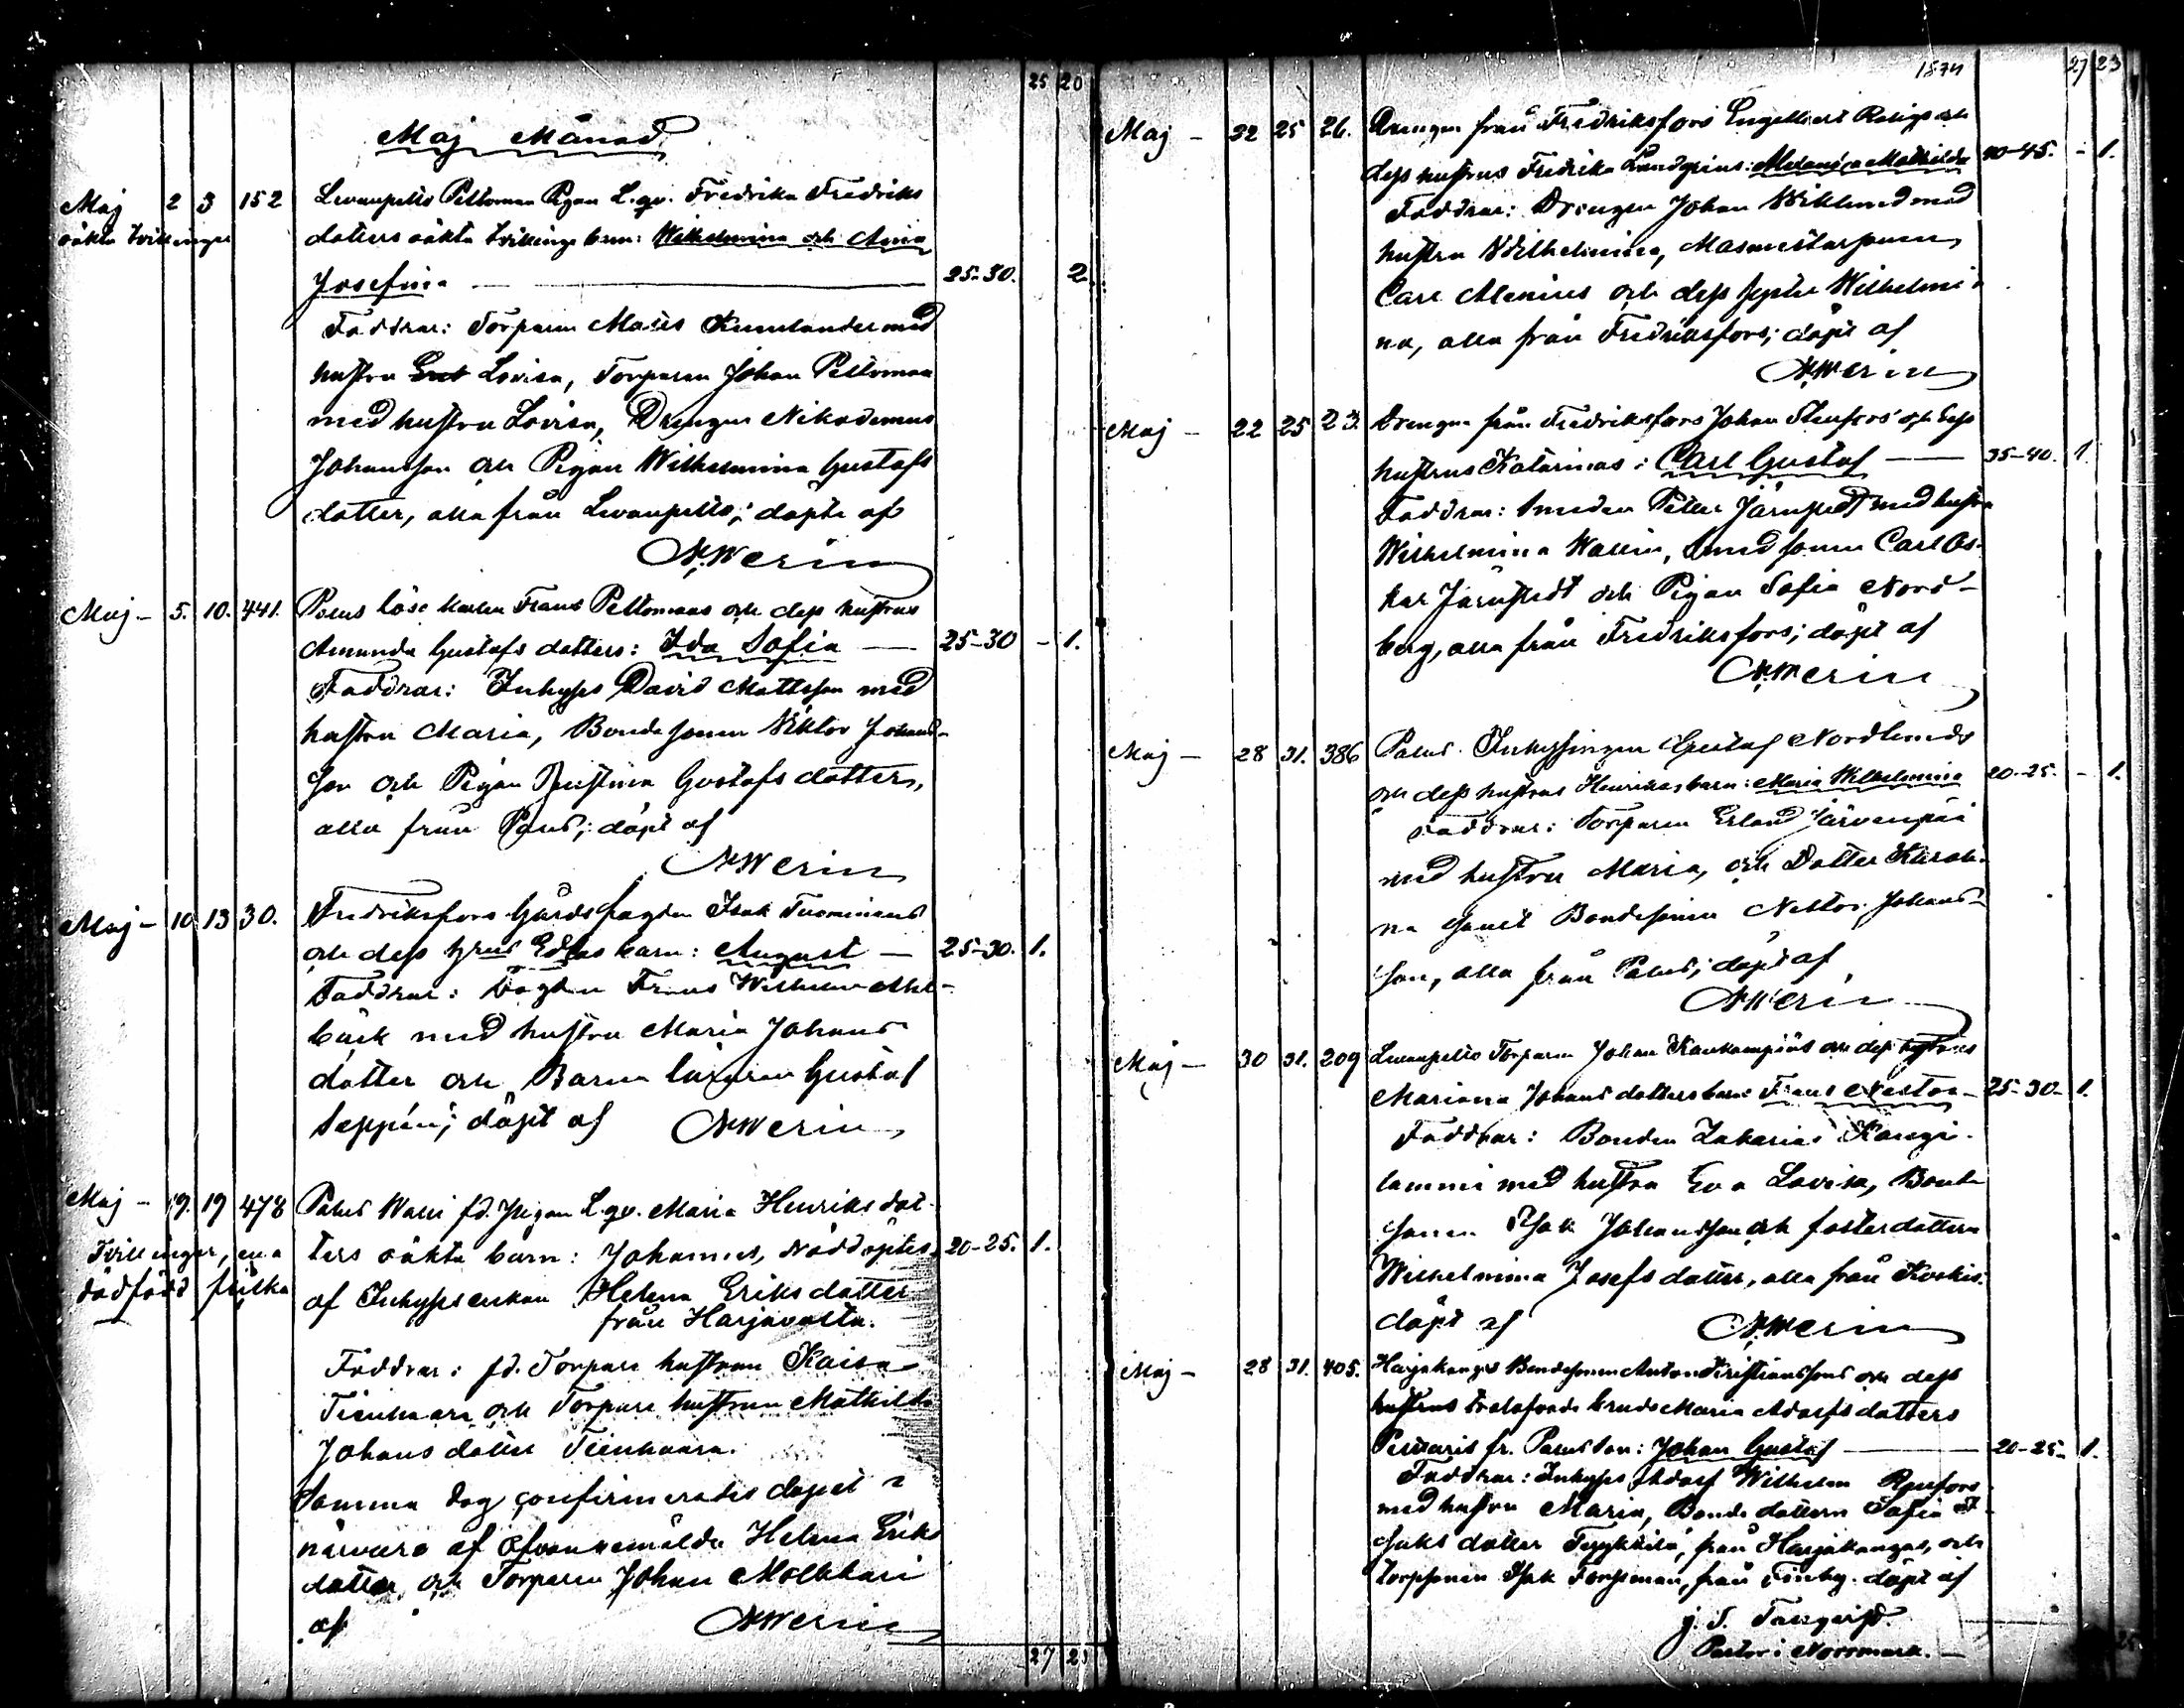 25 20
Maj Månad
Maj 2 3 152 Levanpelto Peltoman Pigan L. qv. Fredrika Fredriks
oäkta tvillingar dotters oäkta tvillinge barn: Wilhelmina och Anna
Josefina — 25-30. 2
Faddrar: Torparen Matts Kumlander med
hustru Lovisa, Torparen Johan Peltoman
med hustru Lovisa, Drengen Nikodemus
Johansson och Pigan Wilhelmina Gustafs
dotter, alla från Levanpelto; döpte af
Werin
Maj - 5. 10. 441. Pomus löse karlen Frans Peltomaas och dess hustrus
Amanda Gustafs dotters: Ida Sofia — 25-30 - 1.
Faddrar: Inhyses David Mattsson med
hustru Maria, Bonde sonen Viktor Johans-
son och Pigan Justina Gustafs dotter,
alla från; döpt af
Werin
Maj - 10 13 30. Fredriksfors Gårds fogden Isak Tuominens
och dess hrus Eddas barn: August — 25-30. 1.
Faddrar: Fogden Frans Wilhelm Ahl-
bäck med hustru Maria Johans
dotter och Barna läraren Gustaf
Seppän; döpt af Werin
Maj - 19. 19 478 Wall fd. Pigan L. qv. Maria Henriks dot-
Tvillingar, ena ters oäkta barn: Johannes, Nöddöptes 20-25. 1.
dödfödd flicka af Inhyses enkan Helena Eriks dotter
från Harjavalta.
Faddrar: fd. Torpare hustrun Kaisa
Tienhaara och Torpare hustrun Mathilda
Johans dotter Tienhaara.
Samma dag confirmerades dopet i
närvaro af ofvannemälda Helena Eriks
dotter och Torparen Johan Molkkari
af Werin
27 23
1874 27 23
Maj - 22 25 26. Drengen från Fredriksfors Engelbert och
dess hustrus Fredrika Lundgrens: Melania Mathilda 40-45. - 1.
Faddrar: Drengen Johan Wiklund med
hustru Wilhelmina, Masmästarsonen
Carl Alenius och dess syster Wilhelmi-
na, alla från Fredriksfors; döpt af
Werin
Maj - 22 25 23. Drengen från Fredriksfors Johan Stenfors och dess
hustrus Katarinas: Carl Gustaf — 35-40. 1.
Faddrar: Smeden Petter Järnstedt med hustru
Wilhelmina Wallin, Smedsonen Carl Os-
kar Järnstedt och Pigan Sofia Nord-
berg, alla från Fredriksfors; döpt af
Werin
Maj - 28 31. 386 Inhysingen Gustaf Nordlunds
och dess hustrus Henrikas barn: Maria Wilhelmina 20-25. - 1.
Faddrar: Torparen Erland Järvenpää
med hustru Maria, och Dotter Karoli-
na samt Bondesonen Nestor Johans-
son, alla från; döpt af
Werin
Maj - 30 31. 209 Levanpelto Torparen Johan Kaukanpääs och dess hustrus
Mariana Johans dotters barn: Frans Nestor - 25-30- 1.
Faddrar: Bonden Zakarias Kangi-
lammi med hustru Eva Lovisa, Bonde
sonen Isak Johansson och fosterdottern
Wilhelmina Josefs dotter, alla från
döpt af Werin
Maj - 28 31. 405. Harjakangas Bondesonen Anton Kristianssons och dess
hustrus trolofvade bruds Maria Adolfs dotters
fr. son: Johan Gustaf — 20-25- 1.
Faddrar: Inhyses Adolf Wilhelm
med hustru Maria, Bonde dottern Sofia
Isaks dotter, från Harjakangas, och
torpsonen Isak Forssman, från Finby. döpt af
J. T.
Pastor i Norrmark. —